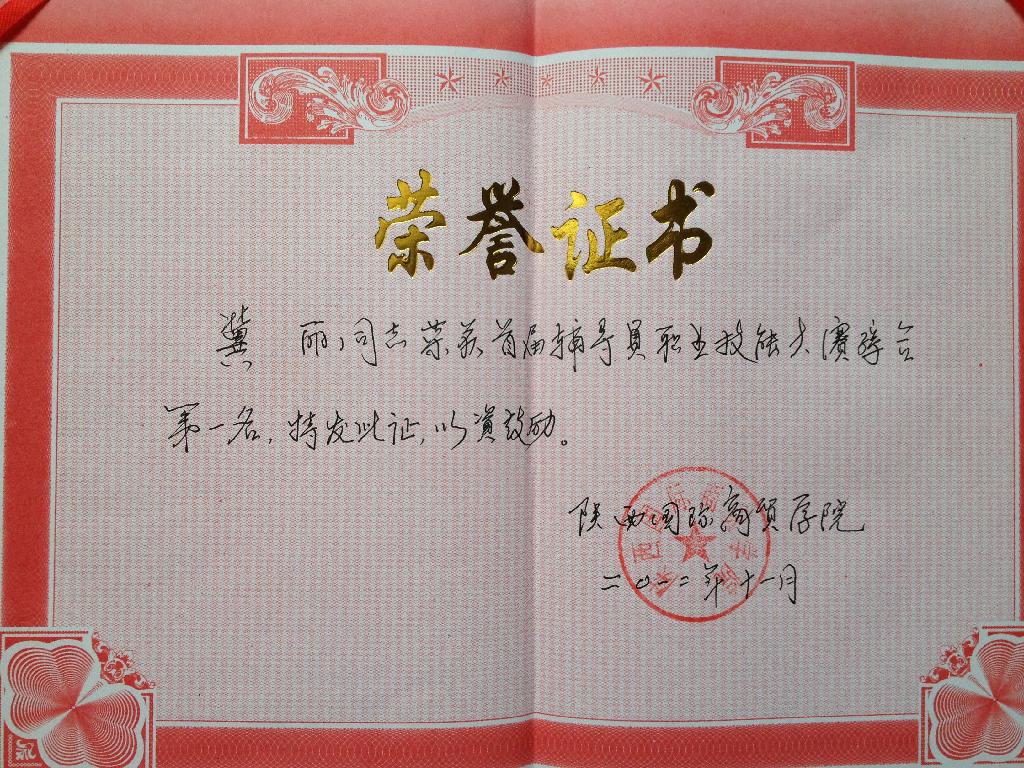 荣誉证书
冀 丽同志荣获首届辅导员职业技能大赛综合
第一名，特发此证，以资鼓励。
陕西国际商贸学院
二〇一二年十一月